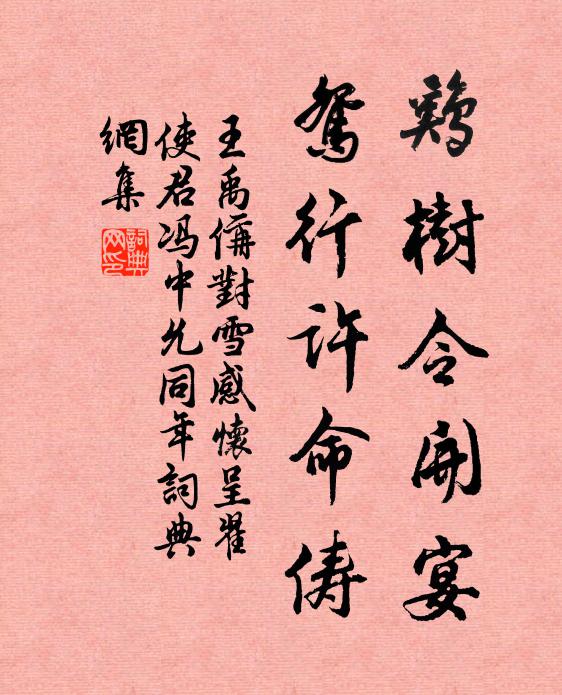 鷄樹令開宴
鴛行許命儔
王禹偁對雪感懷呈翟
使君馮中允同年詞典
網集
詞典網印